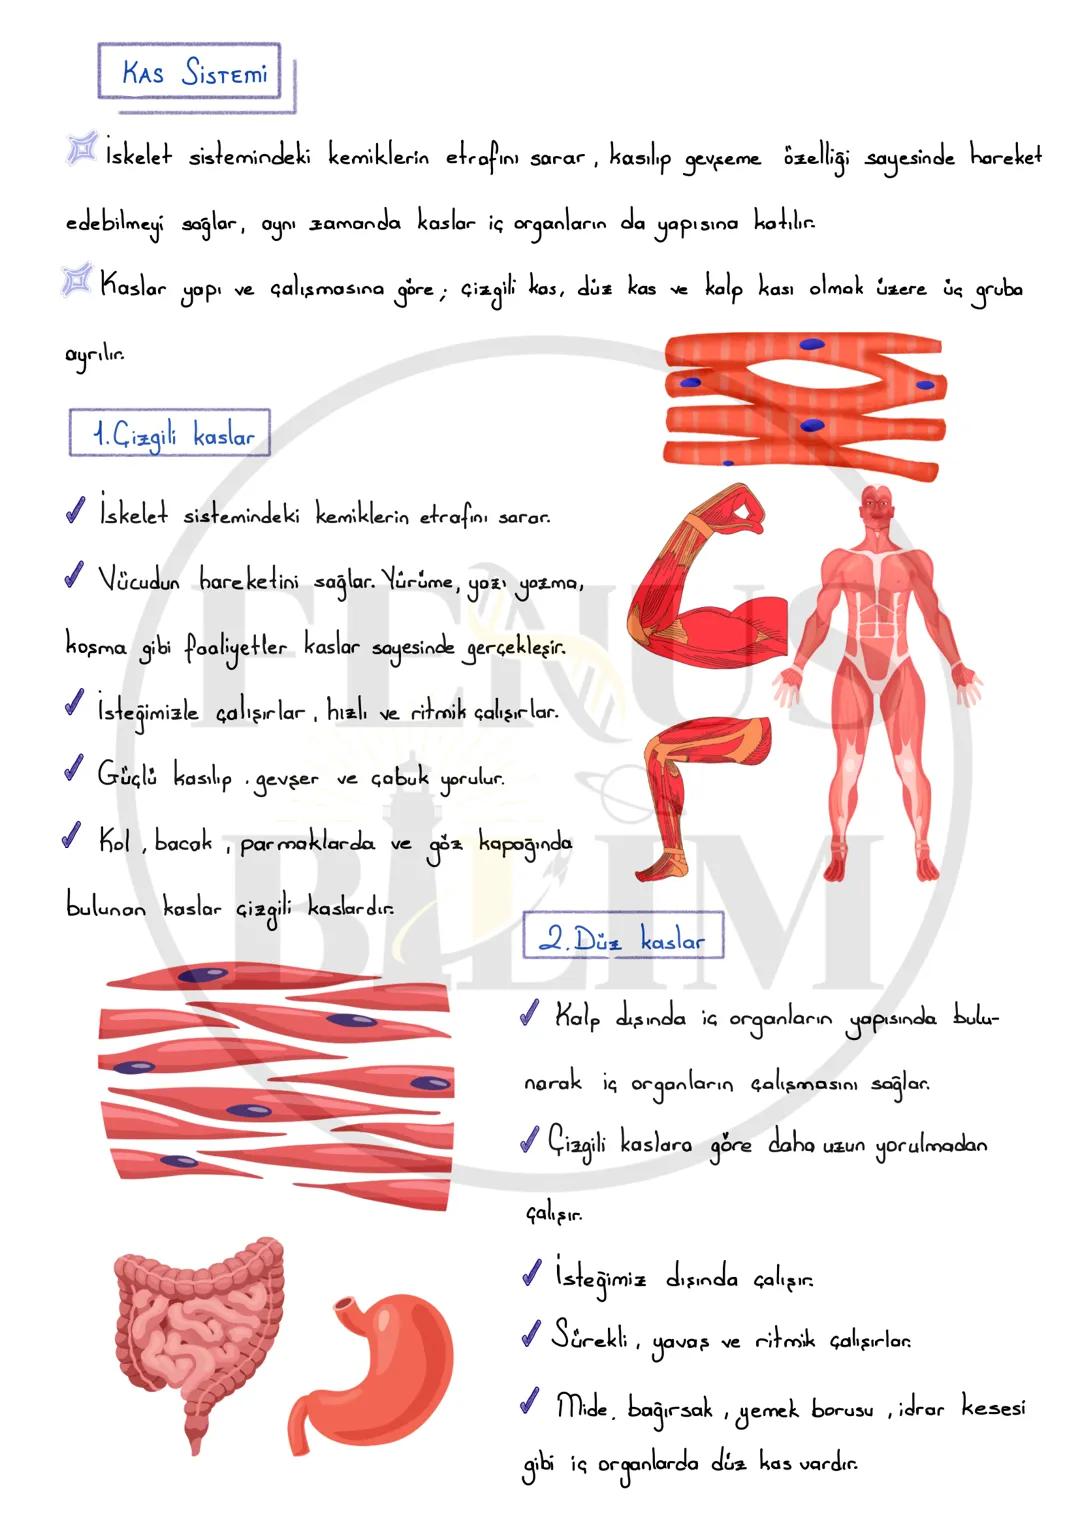 KAS SİSTEMİ
İskelet sistemindeki kemiklerin etrafını sarar, kasılıp gevşeme özelliği sayesinde hareket
edebilmeyi sağlar, aynı zamanda kaslar iç organların da yapısına katılır.
Kaslar yapı ve çalışmasına göre; çizgili kas, düz kas ve kalp kası olmak üzere üç gruba
ayrılır.
1.Çizgili kaslar
İskelet sistemindeki kemiklerin etrafını sarar.
Vücudun hareketini sağlar. Yürüme, yazı yazma,
koşma gibi faaliyetler kaslar sayesinde gerçekleşir.
İsteğimizle çalışırlar, hızlı ve ritmik çalışırlar.
Güçlü kasılıp . gevşer ve çabuk yorulur.
Kol, bacak, parmaklarda ve göz kapağında
bulunan kaslar çizgili kaslardır.
2.Düz kaslar
Kalp dışında iç organların yapısında bulu-
narak iç organların çalışmasını sağlar.
Çizgili kaslara göre daha uzun yorulmadan
çalışır.
İsteğimiz dışında çalışır.
Sürekli, yavaş ve ritmik çalışırlar.
Mide, bağırsak, yemek borusu, idrar kesesi
gibi iç organlarda düz kas vardır.
FENUS
BİLİM